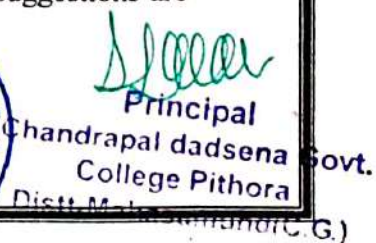 suggestions are
Principal
Chandrapal dadsena Govt.
College Pithora
Distt. Mahasamund(C.G.)